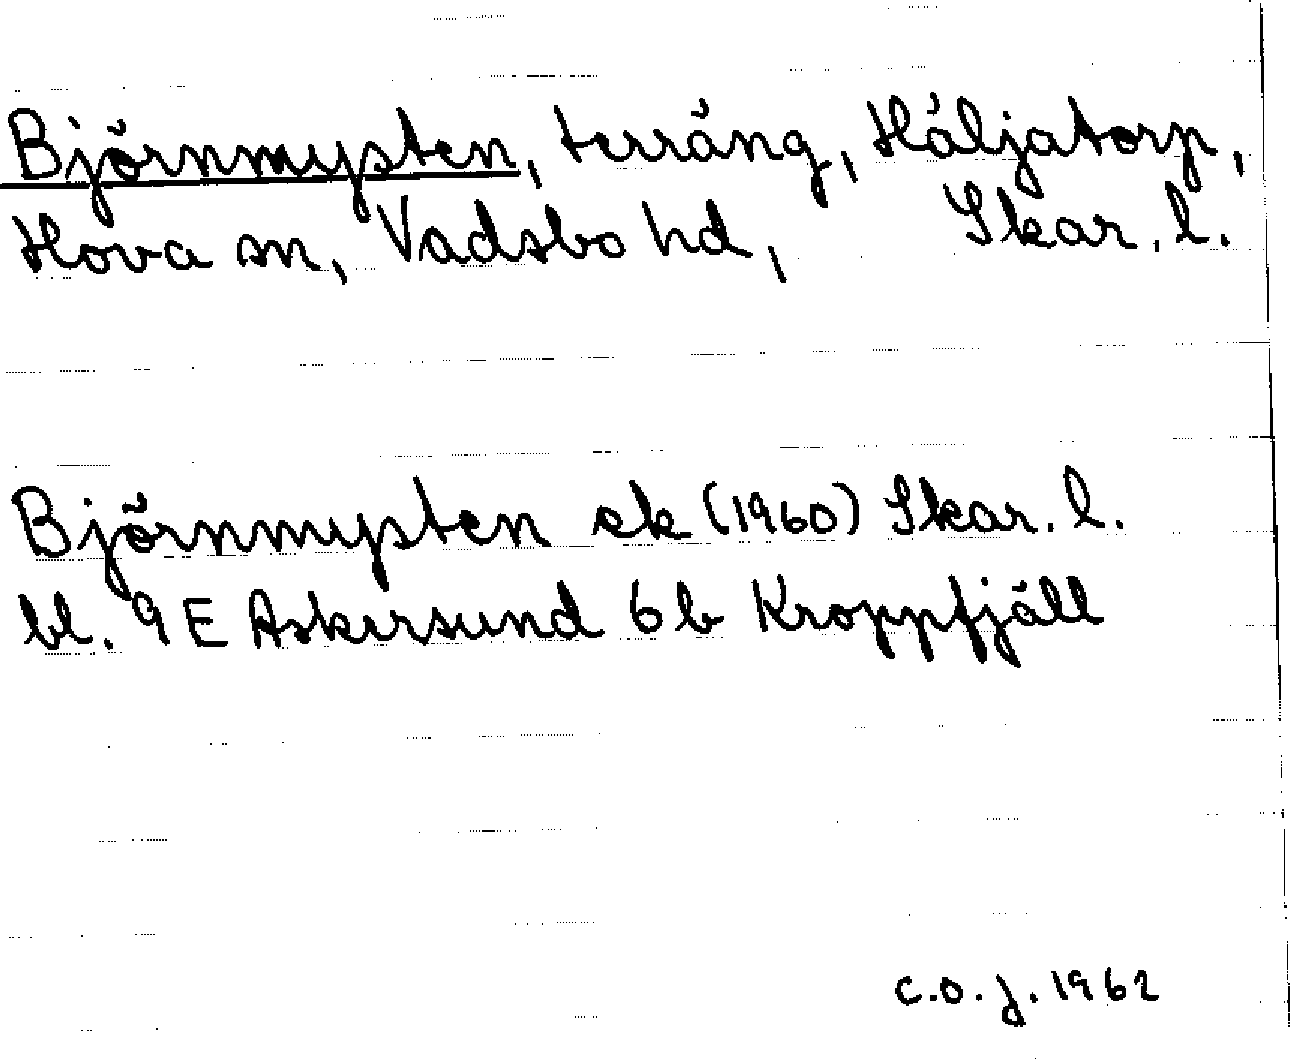 Björnmysten, terräng, Häljatorp,
Hova sn, Vadsbo hd, Skar. l.
Björnmysten ek (1960) Skar. l.
bl. 9 E Askersund 6 b Kroppfjäll
C.O.J. 1962